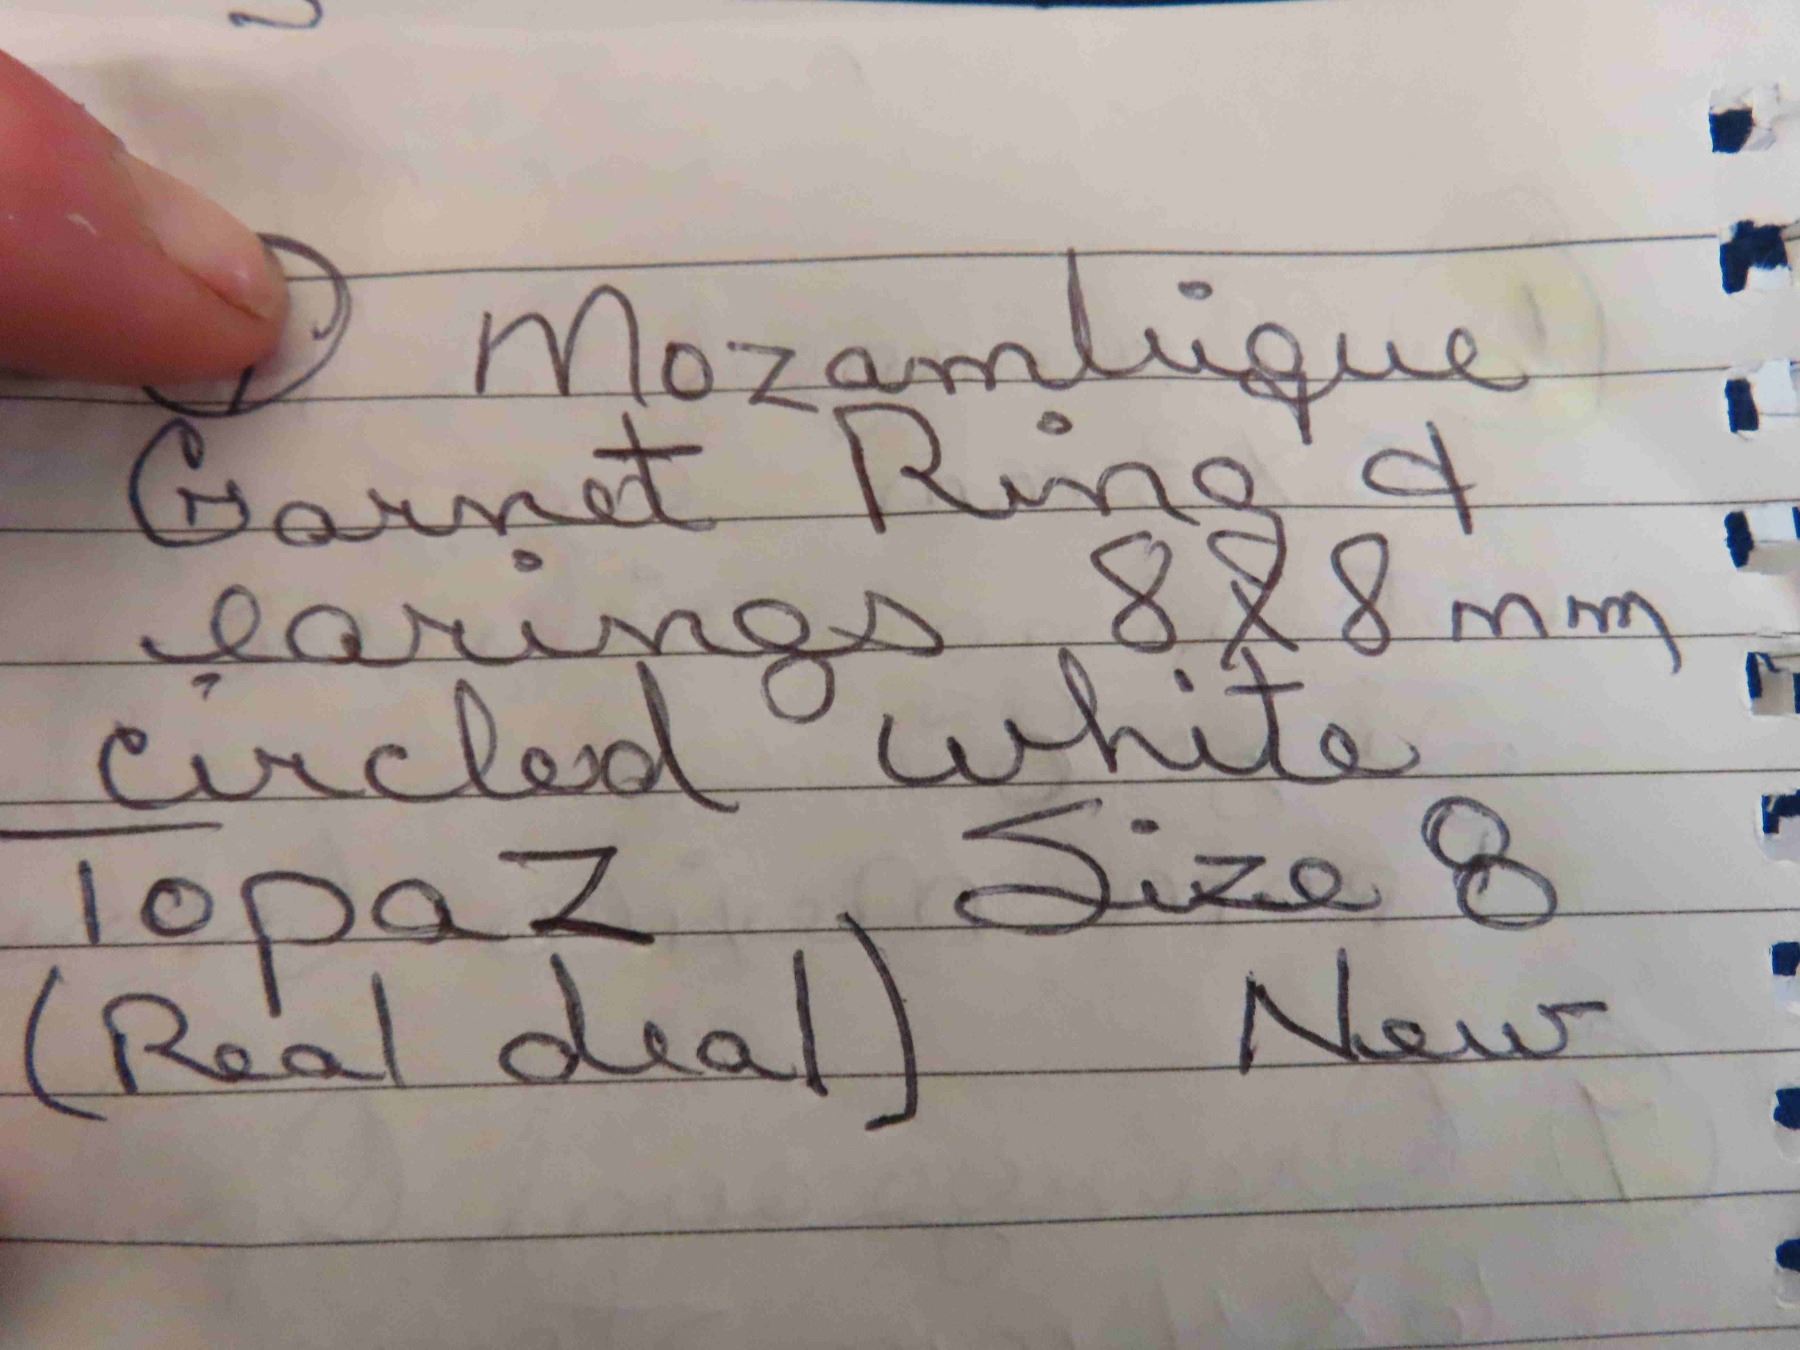 Mozambique
Garnet Ring &
earings 8X8 mm
circled white
Topaz Size 8
(Real deal) New